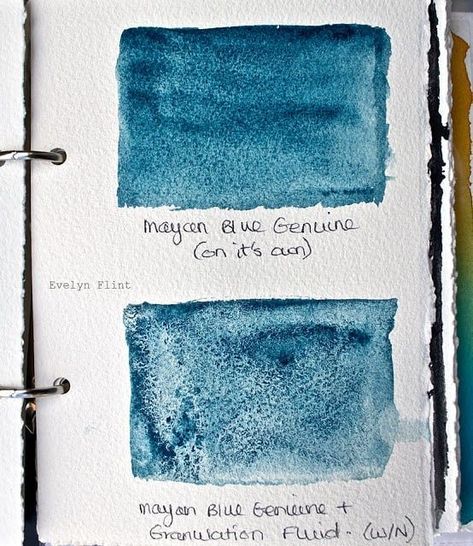 Mayan Blue Genuine
(on it's own)
Evelyn Flint
Mayan Blue Genuine +
Granulation Fluid. (W/N)